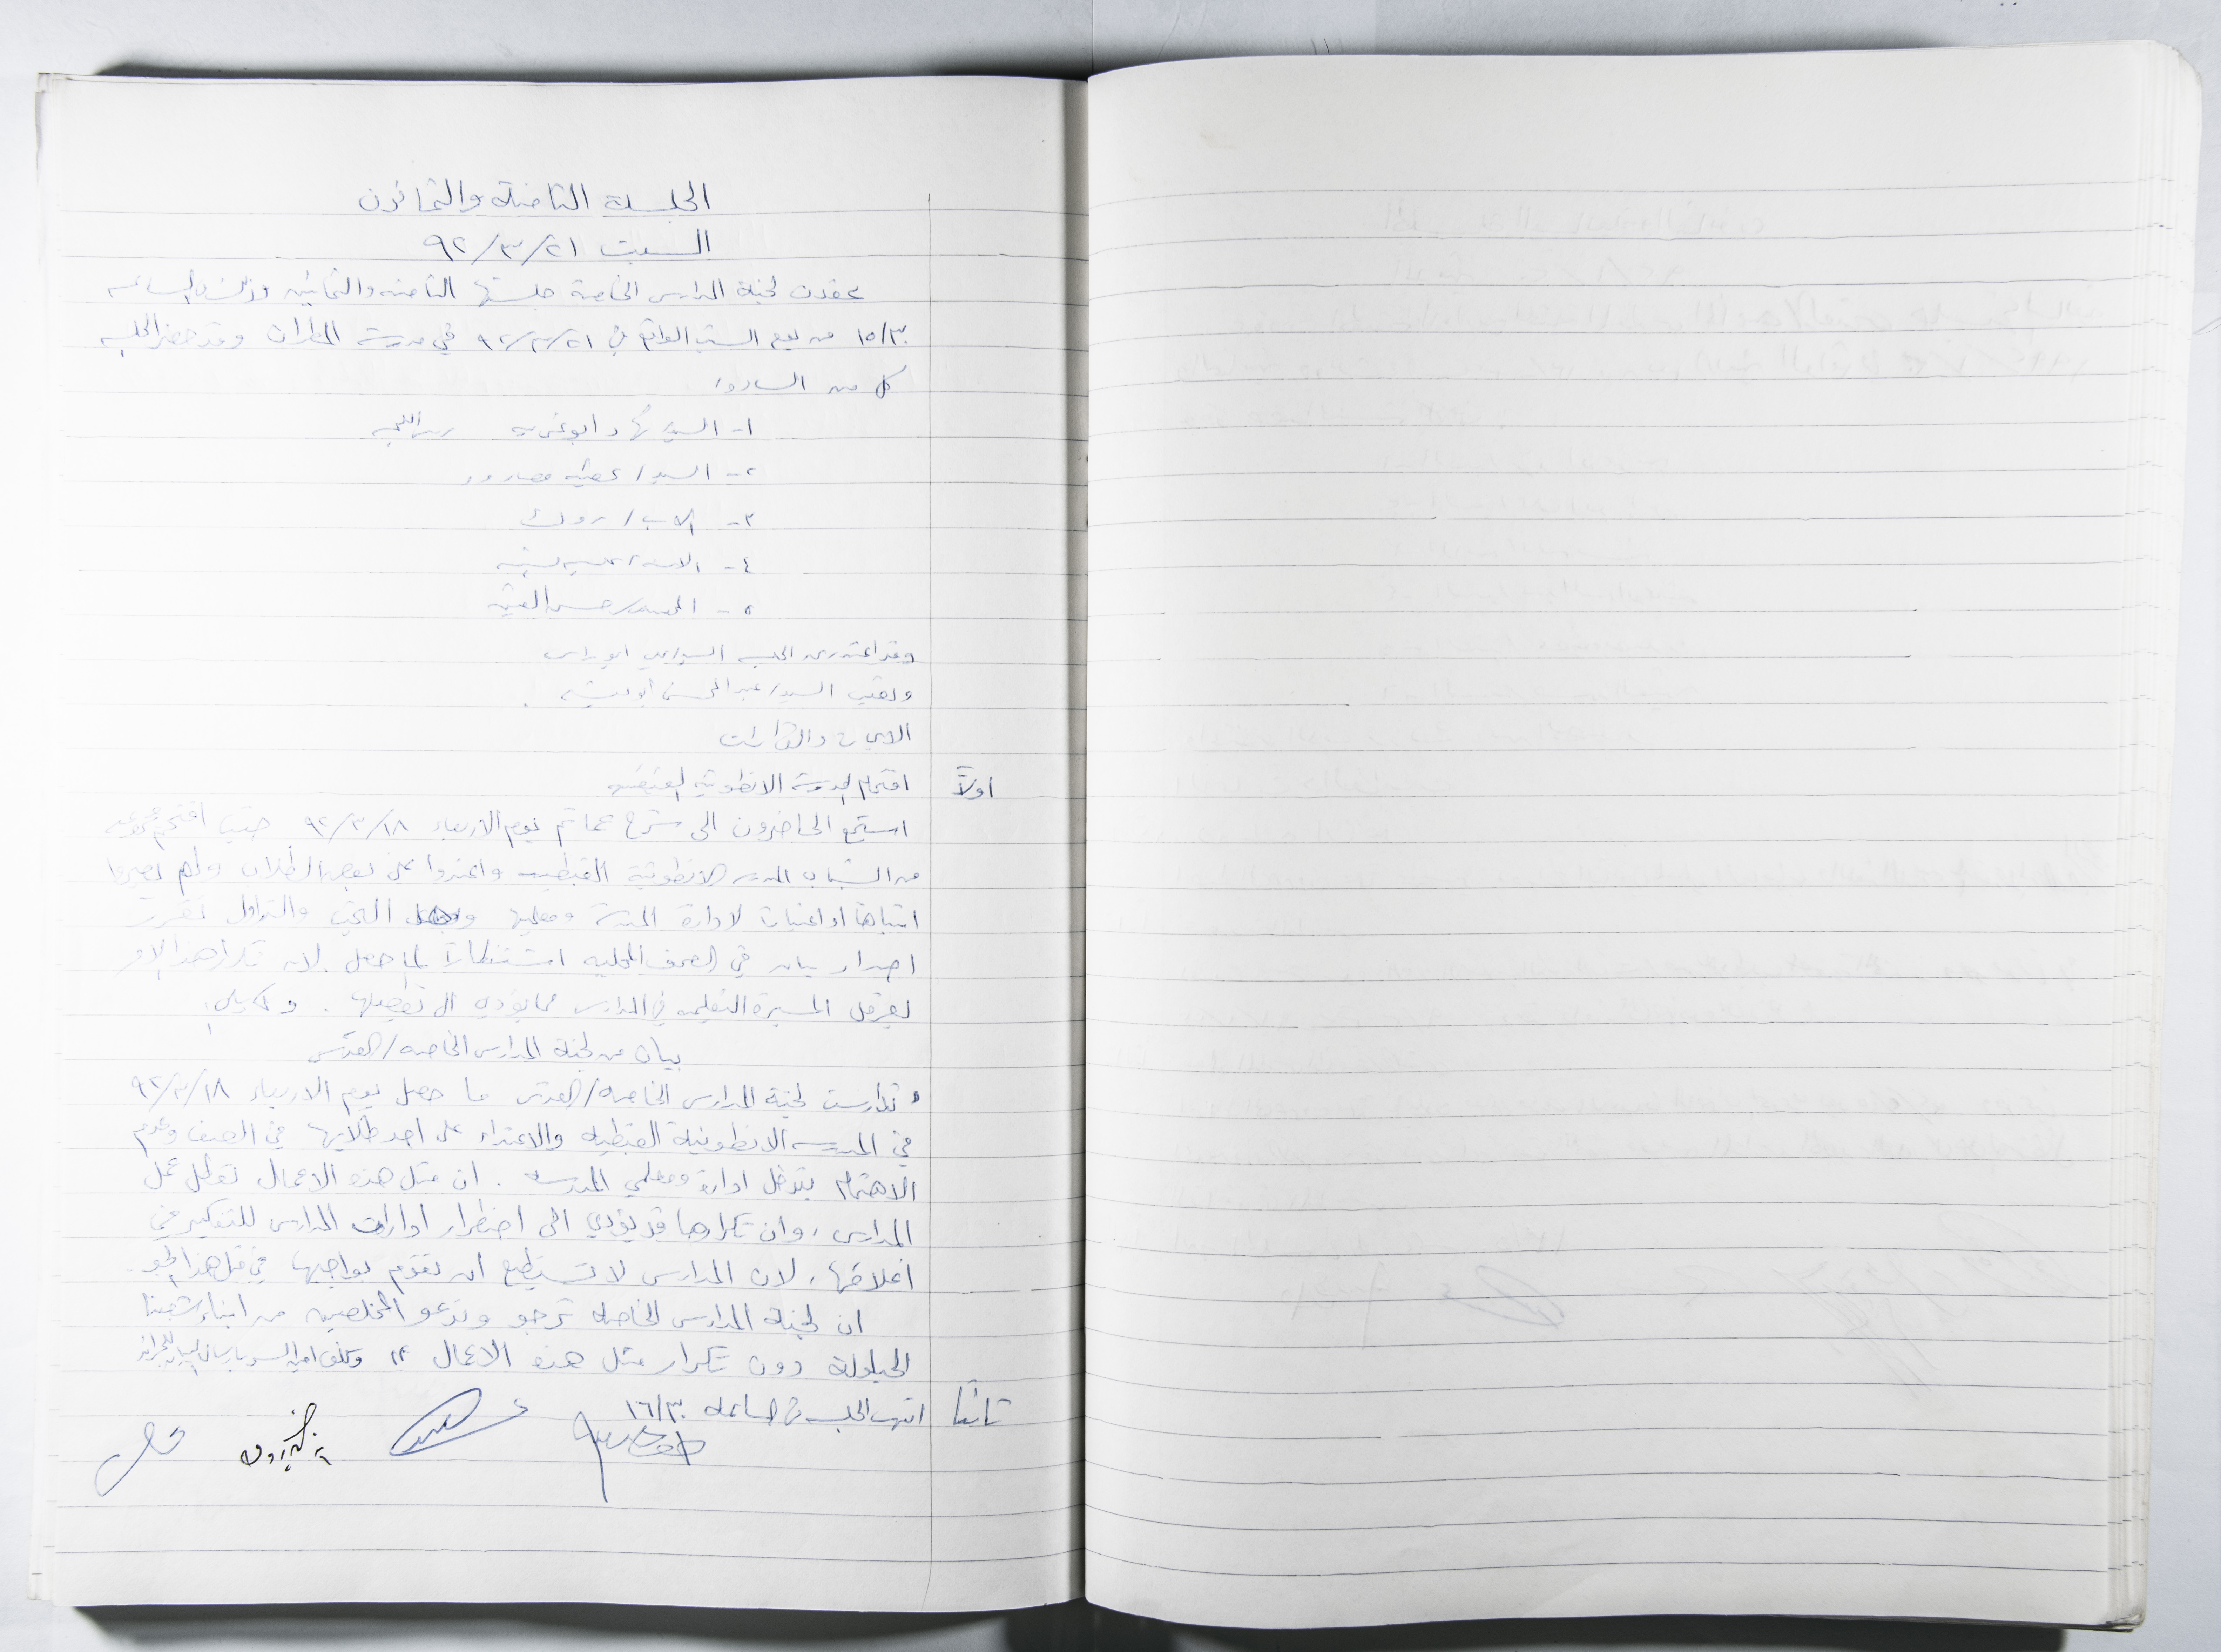 الجلسة الثامنة والثمانون
السبت ٩٢/٣/٢١
عقدت لجنة المدارس الخاصة جلستها الثامنه والثمانين وذلك الساعه
١٥/٣٠ من يوم السبت الواقع في ٩٢/٣/٢١ في مدرسة المطران وقد حضر الجلسه
كل من الساده:
١- السيد/ نهاد ابو غربيه رئيس اللجنه
٢- السيد/ عطيه
٣- الاب/
٤- الانسه/
٥- السيد/ حسن القيق
وقد اعتذر عن الجلسه السيد/
وتغيب السيد/ عبد المحسن ابو
الابحاث والقرارات
اولاً اقتحام المدرسة الانطونيه القبطيه
استمع الحاضرون الى شرح عما تم يوم الاربعاء ٩٢/٣/١٨ حيث اقتحم مجموعه
من الشباب المدرسه الانطونية القبطيه واعتدوا على بعض الطلاب ولم يعيروا
انتباها او اعتبارا لادارة المدرسة ومعلميها وبعد البحث والتداول تقرر
اصدار بيان في الصحف المحليه استنكاراً لما حصل. لان تكرار هذا الامر
يعرقل المسيرة التعليميه في المدارس مما يؤدي الى تعطيلها.
بيان من لجنة المدارس الخاصه/القدس
" تدارست لجنة المدارس الخاصه/القدس ما حصل يوم الاربعاء ٩٢/٣/١٨
في المدرسه الانطونية القبطيه والاعتداء على احد طلابها في الصف وعدم
الاهتمام بتدخل ادارة ومعلمي المدرسه. ان مثل هذه الاعمال تعطل عمل
المدارس، وان تكرارها قد يؤدي الى اضطرار ادارات المدارس للتفكير في
اغلاقها، لان المدارس لا تستطيع ان تقوم بواجبها في مثل هذا الجو.
ان لجنة المدارس الخاصه ترجو وتدعو المخلصين من ابناء شعبنا
الحيلولة دون تكرار مثل هذه الاعمال " وكلف امين السر بارسال البيان للجرائد
ثانياً انتهت الجلسه في الساعه ١٦/٣٠